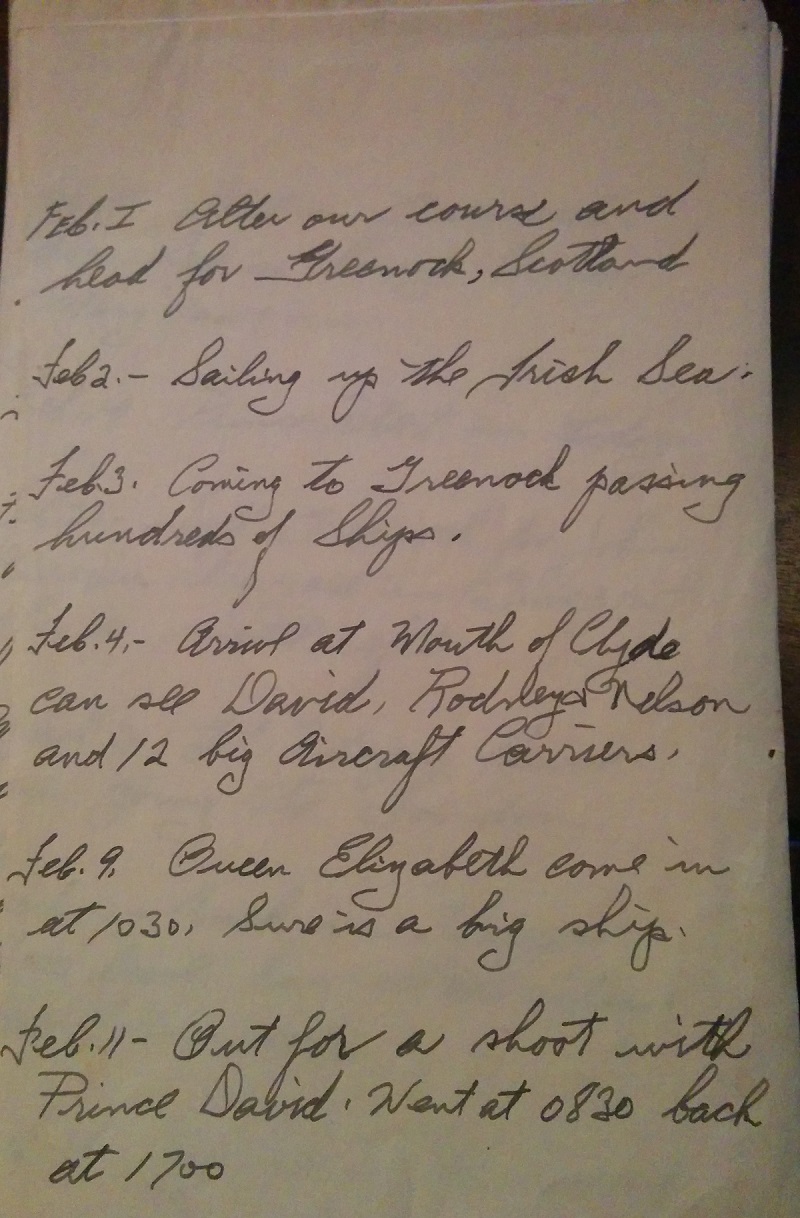 Feb. I Alter our course and
head for Greenock, Scotland
Feb 2.- Sailing up the Irish Sea.
Feb 3. Coming to Greenock passing
hundreds of Ships.
Feb. 4.- Arrive at Mouth of Clyde
can see David, Rodney & Nelson
and 12 big Aircraft Carriers.
Feb. 9. Queen Elizabeth come in
at 1030. Sure is a big ship.
Feb. 11- Out for a shoot with
Prince David. Went at 0830 back
at 1700